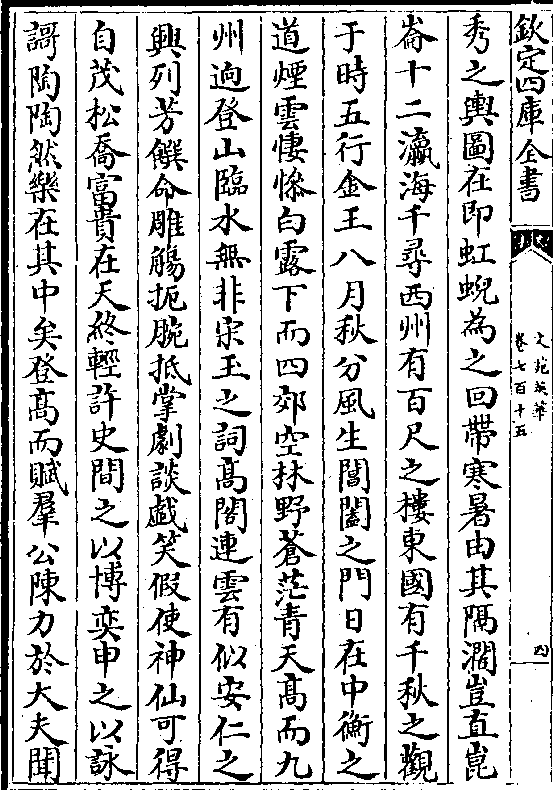 欽定四庫全書
文苑英華
卷七百十五
四
秀之輿圖在即虹蜺為之回帶寒暑由其隔濶豈直崑
崙十二瀛海千尋西州有百尺之樓東國有千秋之觀
于時五行金王八月秋分風生閶闔之門日在中衡之
道煙雲悽慘白露下而四郊空林野蒼茫青天高而九
州逈登山臨水無非宋玉之詞高閣連雲有似安仁之
興列芳饌命雕觴扼腕抵掌劇談戯笑假使神仙可得
自茂松喬富貴在天終輕許史間之以博奕申之以詠
謌陶陶然樂在其中矣登高而賦羣公陳力於大夫聞